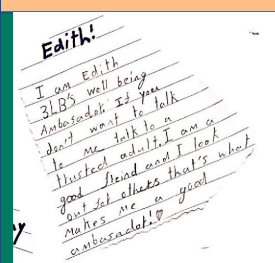 Edith!
I am Edith
3LB's well being
Ambasadot. If you
don't want to talk
to me talk to a
trusted adult. I am a
good freind and I look
out for others that's what
makes me a good
ambasadot!♡
y